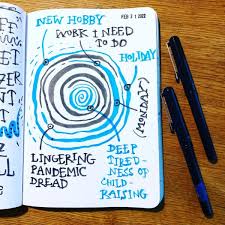 NEW HOBBY
FEB 21 2022
WORK I NEED
TO DO
HOLIDAY
(MONDAY)
LINGERING
PANDEMIC
DREAD
DEEP
TIRED-
NESS OF
CHILD-
RAISING